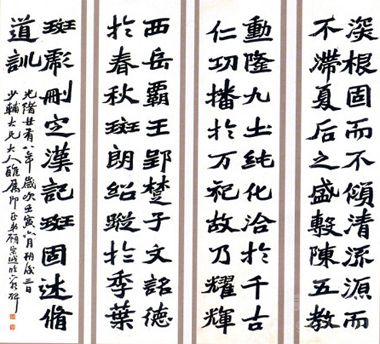 深根固而不傾清流源而
不滯夏后之盛敷陳五教
勳隆九土純化洽於千古
仁功播於万祀故乃耀輝
西岳霸王郢楚子文銘德
於春秋斑朗紹蹤於季葉
斑彪刪定漢記斑固述脩
道訓
光緒廿有八年歲次壬寅八月三日
少輔大兄大人雅屬即正